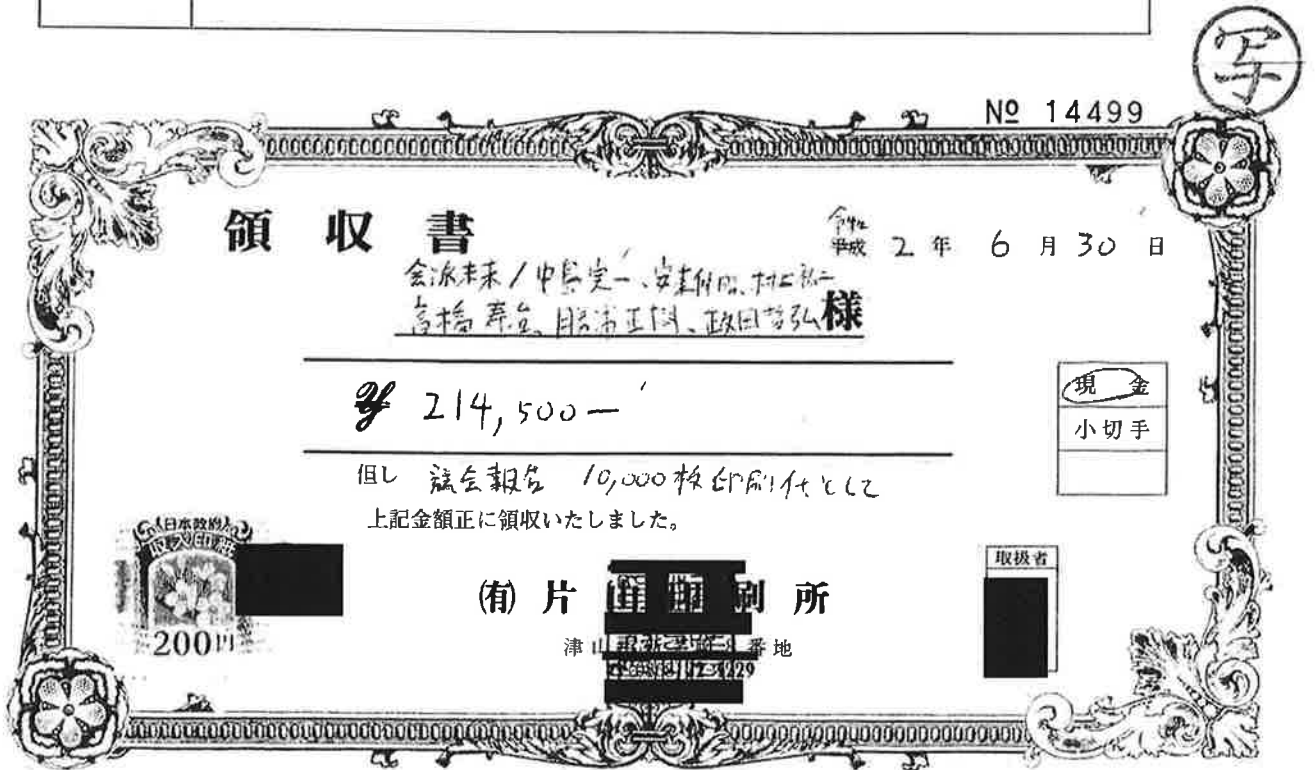 写
№ 14499
領収書
令和
平成 2 年 6 月 30 日
会派未来/中島完一、安東伸昭、村上祐二
高橋寿治、勝浦正樹、政田哲弘様
¥ 214,500―
現金
小切手
但し 議会報告 10,000枚印刷代として
上記金額正に領収いたしました。
日本政府
収入印紙
200円
取扱者
㈲片山印刷所
津山 番地